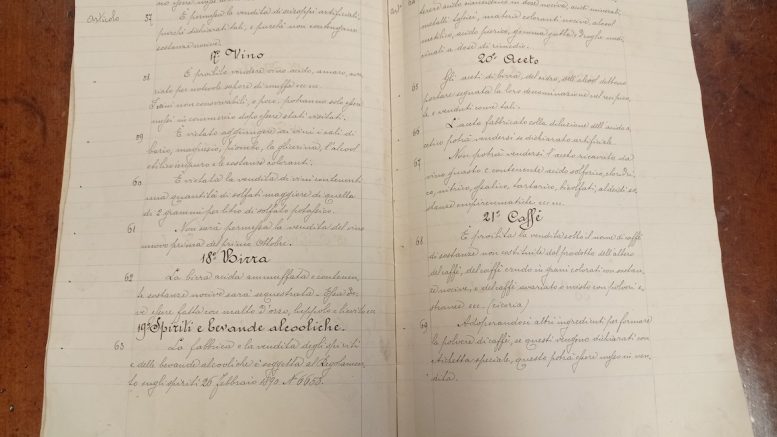 Articolo
57
È permessa la vendita di sciroppi artificiali,
purchè dichiarati tali, e purchè non contengano
sostanze nocive.
17º Vino
58
È proibito vendere vino acido, amaro, ava-
riato per notevole sapore di muffa ecc.
I vini non conservabili, e poco potranno solo essere
messi in commercio dopo essere stati visitati.
59
È vietato aggiungere ai vini i sali di
bario, magnesio, piombo, la glicerina, l'alcool
etilico impuro e le sostanze coloranti.
60
È vietata la vendita di vini contenenti
una quantità di solfati maggiore di quella
di 2 grammi per litro di solfato potassico.
61
Non sarà permessa la vendita del vino
nuovo prima del primo Ottobre.
18º Birra
62
La birra acida ammuffata e contenen-
te sostanze nocive sarà sequestrata. Essa do-
ve essere fatta con malto d'orzo, luppolo e lievito ecc.
19º Spiriti e bevande alcooliche.
63
La fabbrica e la vendita degli spiriti
e delle bevande alcooliche è soggetta al Regolamen-
to sugli spiriti 26 Febbraio 1890 Nº 6653.
metalli tossici, materie coloranti nocive, alcool
metilico, acido picrico, gomma gutta e droghe me-
dicinali a dose di rimedio.
20º Aceto
65
Gli aceti di birra, del sidro, dell'alcool debbono
portare segnata la loro denominazione nel recipiente
e venduti come tali.
66
L'aceto fabbricato colla diluzione dell'acido a-
cetico potrà vendersi se dichiarato artificiale.
67
Non potrà vendersi l'aceto ricavato da
vino guasto e contenente acido solforico, cloridri-
co, nitrico, ossalico, tartarico, bisolfati, aldeidi so-
stanze empireumatiche ecc.
21º Caffè
68
È proibita la vendita sotto il nome di caffè
di sostanze non costituite dal prodotto dell'albero
del caffè, del caffè crudo in grani colorati con sostan-
ze nocive, e del caffè avariato o misto con polveri e-
stranee ecc. (cicoria)
69
Adoperandosi altri ingredienti per formare
le polveri di caffè, se questi vengono dichiarati con
etichetta speciale, questo potrà essere messo in ven-
dita.